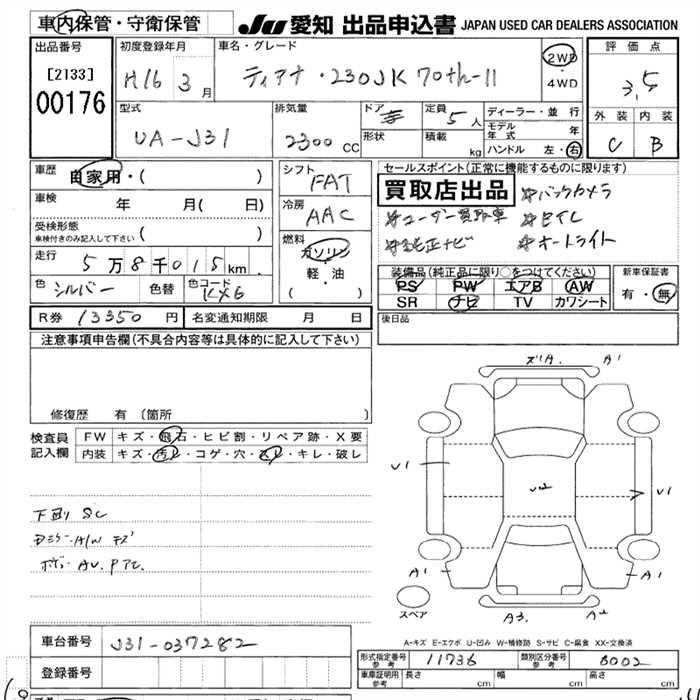 車内保管・守衛保管
JU 愛知 出品申込書 JAPAN USED CAR DEALERS ASSOCIATION
出品番号
[2133]
00176
初度登録年月
H16 3月
車名・グレード
ティアナ・230JK 70th-II
2WD
・
4WD
評価点
3,5
外装 内装
C B
型式
UA-J31
排気量
2300 CC
ドア
形状
定員 5人
積載 kg
ディーラー・並行
モデル年式 年
ハンドル 左・右
車歴 自家用・( )
車検 年 月( 日)
受検形態
車検付きのみ記入して下さい ( )
走行 5万8千015km
色 シルバー 色替 色コード KX6
シフト FAT
冷房 AAC
燃料
ガソリン
・
軽・油
( )
セールスポイント(正常に機能するものに限ります)
買取店出品
☆バックカメラ
☆ユーザー買取車 ☆ETC
☆純正ナビ ☆オートライト
装備品(純正品に限り○をつけてください)
PS PW エアB AW
SR ナビ TV カワシート
新車保証書
有・無
R券 13350円 名変通知期限 月 日
後日品
注意事項申告欄(不具合内容等は具体的に記入して下さい)
修復歴 有 (箇所 )
検査員
記入欄
FW キズ・飛石・ヒビ割・リペア跡・X要
内装 キズ・汚レ・コゲ・穴・スレ・キレ・破レ
下廻り SC
A/W キズ
AV. P た.
ズ1A. A1
U1
U2
U1
A1
A1
A3.
A2
スペア
A-キズ E-エクボ U-凹み W-補修跡 S-サビ C-腐食 XX-交換済
車台番号 J31-037282
登録番号
形式指定番号 参考 11736 類別区分番号 参考 0002
車庫証明用 参考 長さ cm 幅 cm 高さ cm